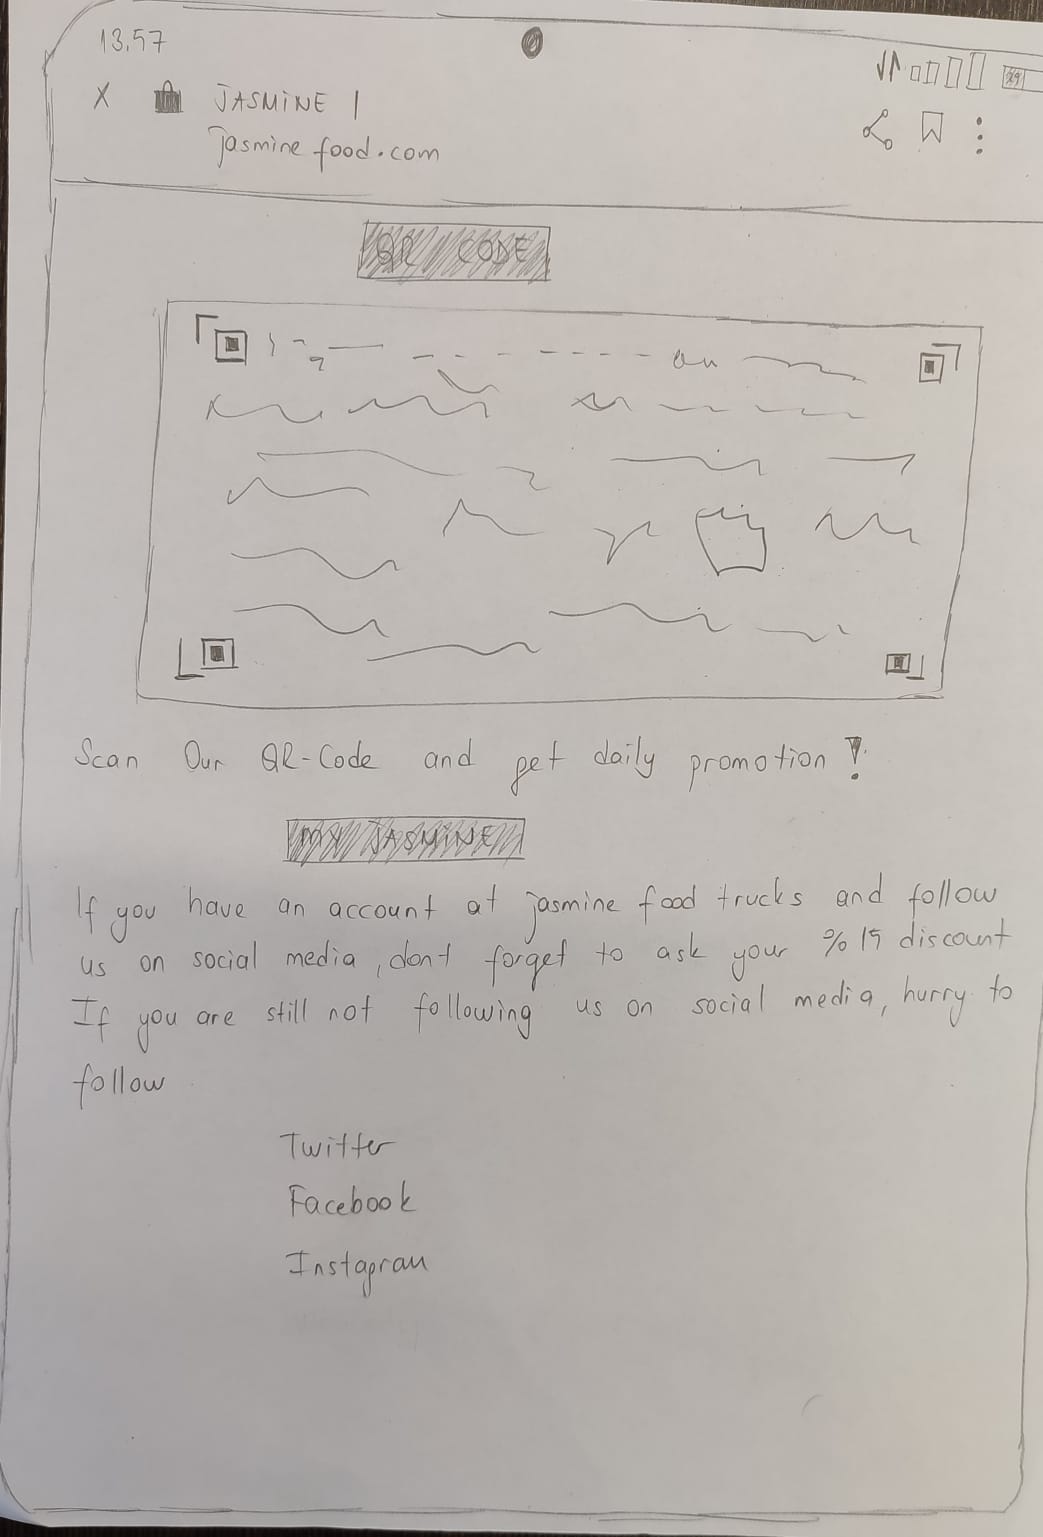 13.57
X JASMINE |
jasmine food.com
QR CODE
Scan Our QR-Code and get daily promotion!
MY JASMINE
If you have an account at jasmine food trucks and follow
us on social media, dont forget to ask your %15 discount
If you are still not following us on social media, hurry to
follow
Twitter
Facebook
Instagram